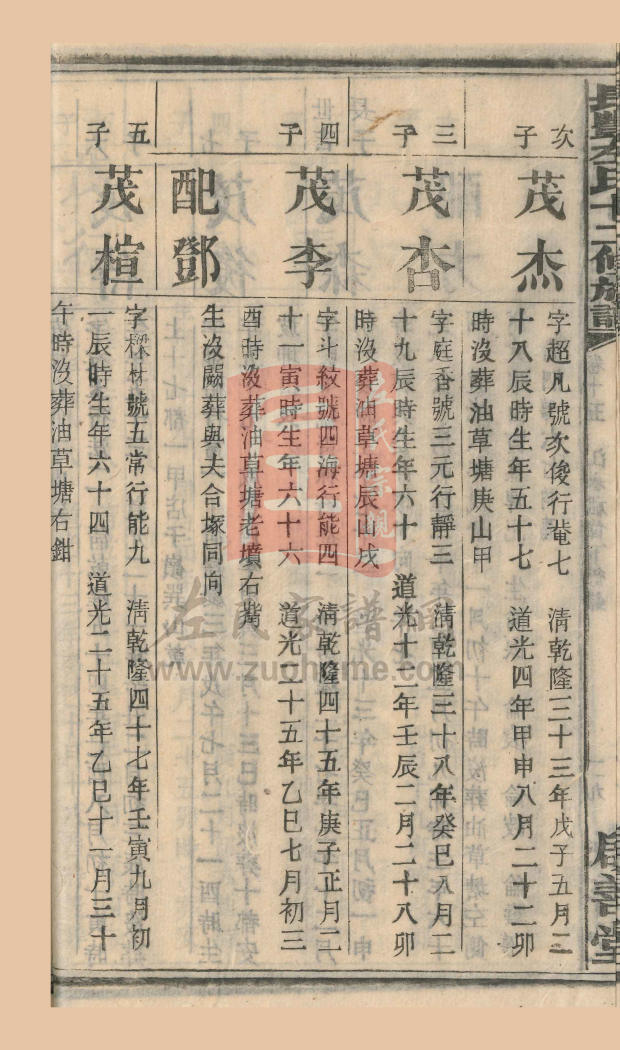 長豐左氏十二修族譜
居善堂
次子
茂杰
字超凡號次俊行菴七 清乾隆三十三年戊子五月二
十八辰時生年五十七 道光四年甲申八月二十二卯
時沒葬油草塘庚山甲
三子
茂杏
字庭香號三元行靜三 清乾隆三十八年癸巳八月二
十九辰時生年六十 道光十二年壬辰二月二十八卯
時沒葬油草塘辰山戌
四子
茂李
字斗紋號四海行能四 清乾隆四十五年庚子正月二
十一寅時生年六十六 道光二十五年乙巳七月初三
酉時沒葬油草塘老墳右觜
配鄧
生沒闕葬與夫合塚同向
五子
茂楦
字樑材號五常行能九 清乾隆四十七年壬寅九月初
一辰時生年六十四 道光二十五年乙巳十一月三十
午時沒葬油草塘右鉗
左氏宗親
左氏家譜網
www.zuohome.com